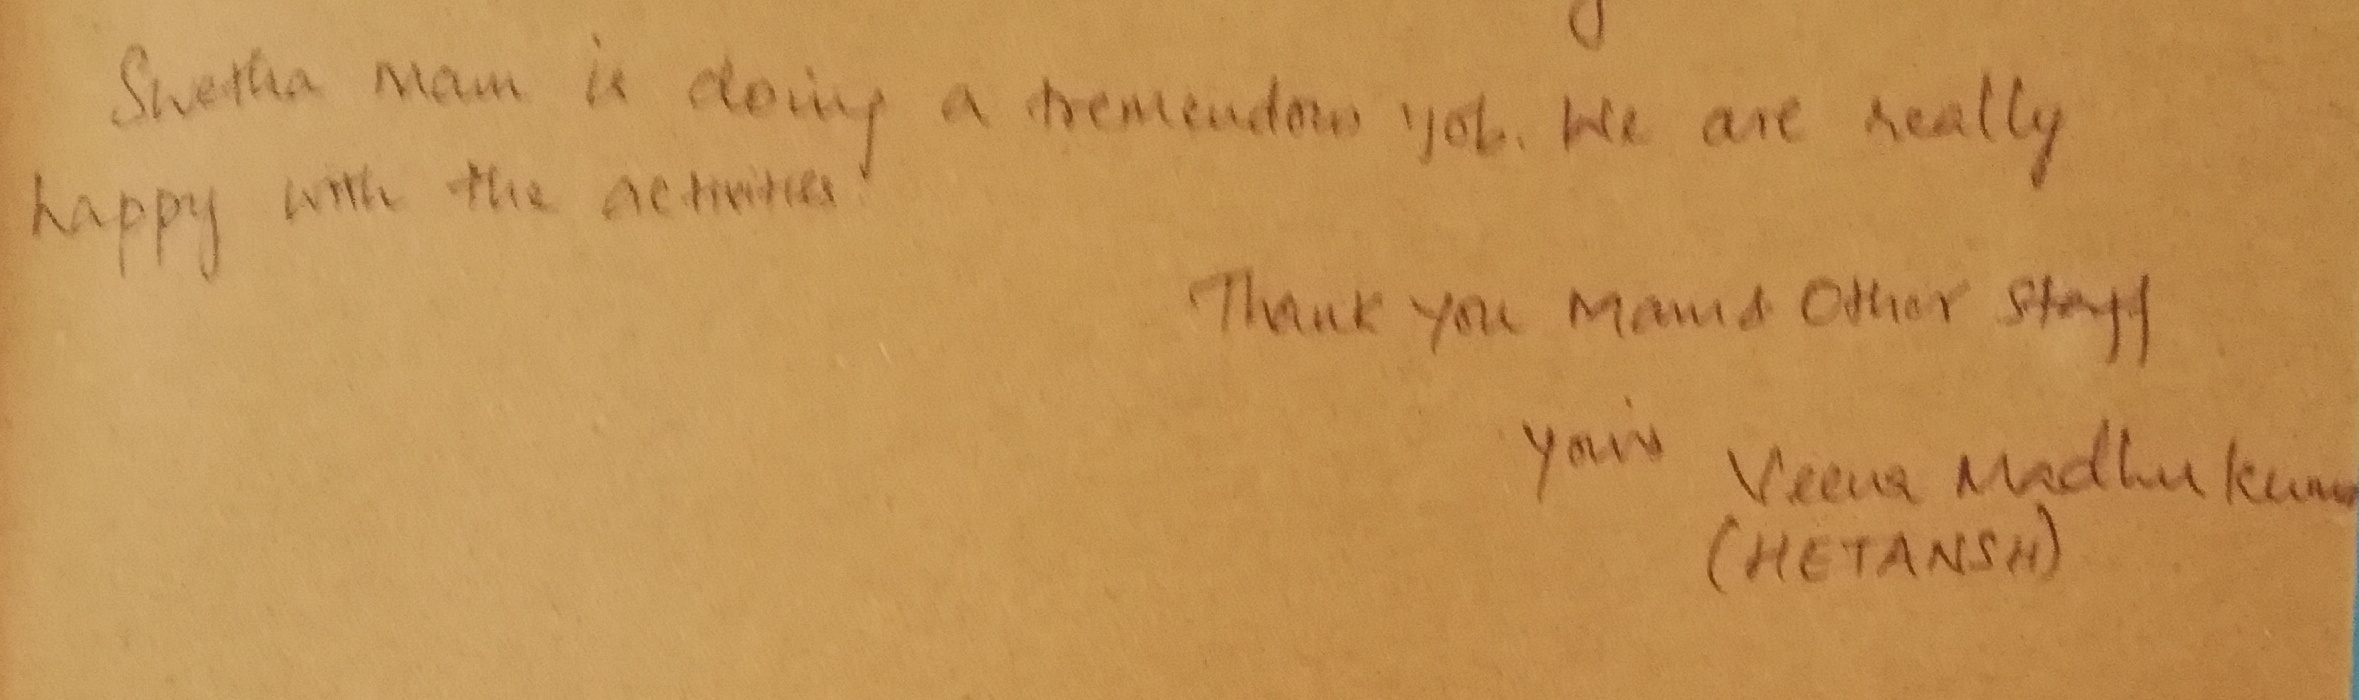 Swetha Mam is doing a tremendous job. We are really
happy with the activities.
Thank you Mam & Other Staff
Yours Veena Madhu kumar
(HETANSH)